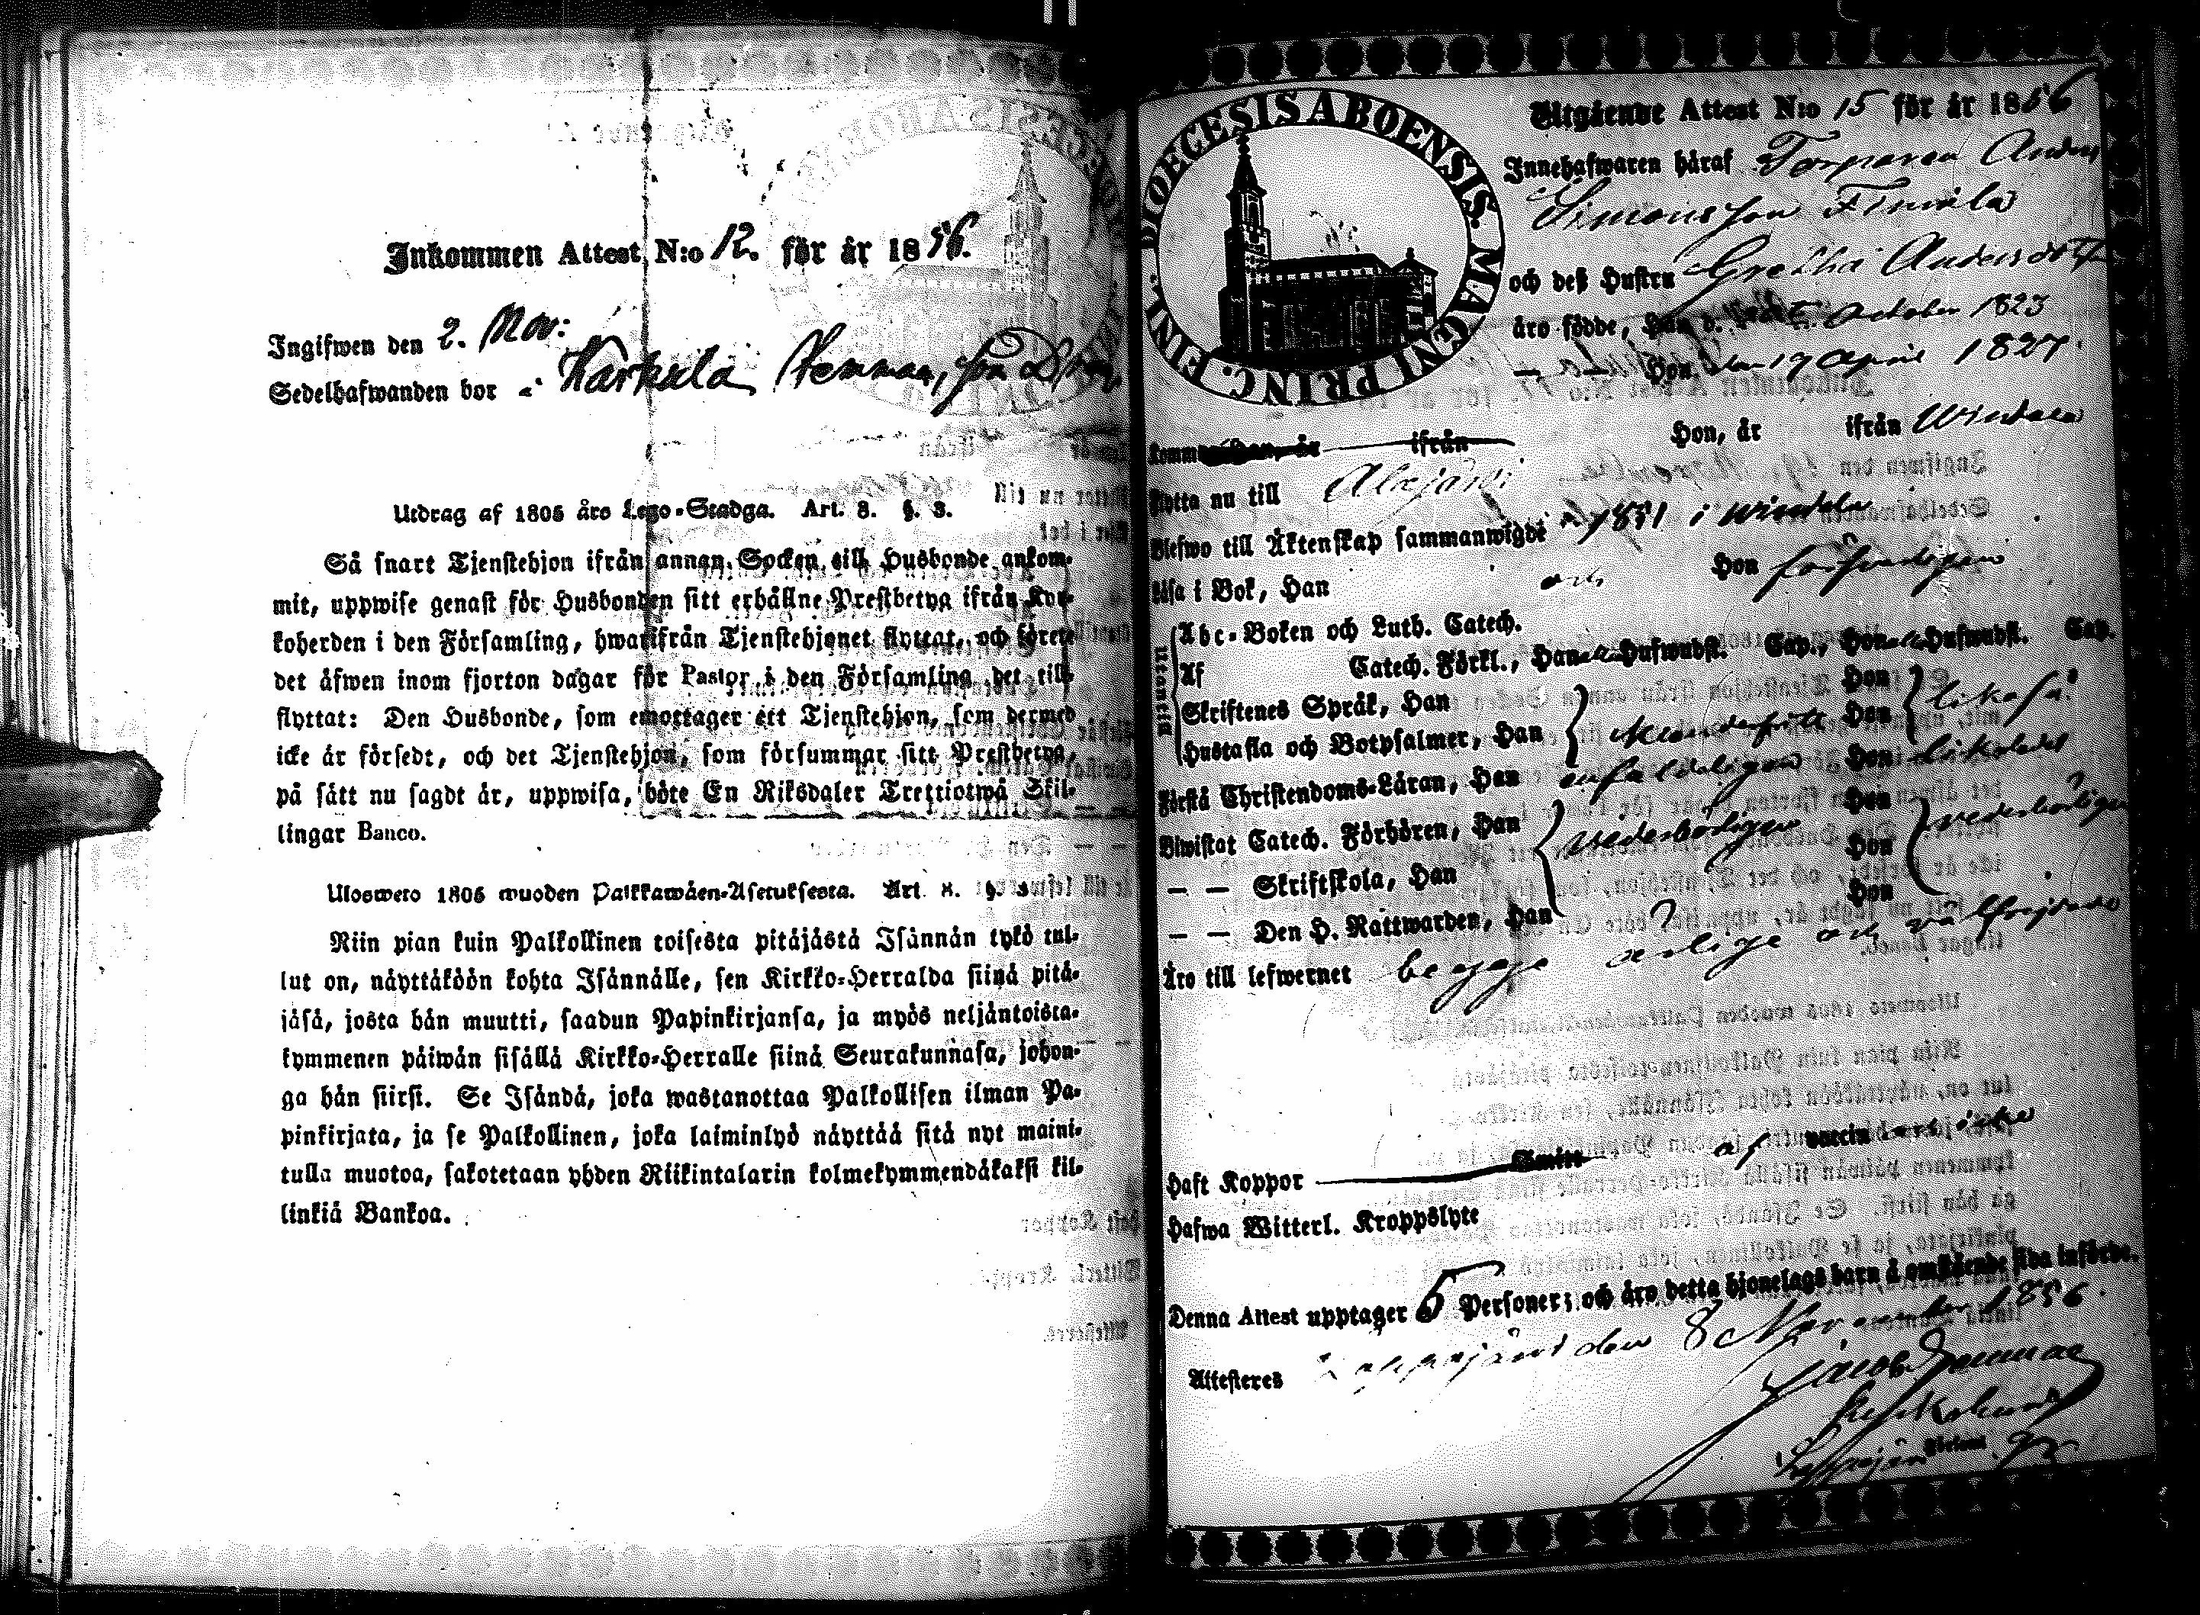 Inkommen Attest N:o 12. för år 1856.
Ingifwen den 2. Nov:
Sedelhafwanden bor i Karkula
Utdrag af 1805 års Lego-Stadga. Art. 8. §. 3.
Så snart Tjenstehjon ifrån annan Socken till Husbonde ankom-
mit, uppwise genast för Husbonden sitt erhållne Prestbetyg ifrån Kyr-
koherden i den Församling, hwarifrån Tjenstehjonet flyttat, och förete
det äfwen inom fjorton dagar för Pastor i den Församling det till-
flyttat: Den Husbonde, som emottager ett Tjenstehjon, som dermed
icke är försedt, och det Tjenstehjon, som försummar sitt Prestbetyg,
på sätt nu sagdt är, uppwisa, böte En Riksdaler Trettiotwå Skil-
lingar Banco.
Ulosweto 1805 wuoden Palkkawäen-Asetuksesta. Art. 8. §. 3
Niin pian kuin Palkollinen toisesta pitäjästä Isännän tykö tul-
lut on, näyttäköön kohta Isännälle, sen Kirkko-Herralda siinä pitä-
jäsä, josta hän muutti, saadun Papinkirjansa, ja myös neljäntoista-
kymmenen päiwän sisällä Kirkko-Herralle siinä Seurakunnasa, johon-
ga hän siirsi. Se Isändä, joka wastanottaa Palkollisen ilman Pa-
pinkirjata, ja se Palkollinen, joka laiminlyö näyttää sitä nyt maini-
tulla muotoa, sakotetaan yhden Riikintalarin kolmekymmendäkaksi kil-
linkiä Bankoa.
DIOECESIS ABOENSIS. MAGNI PRINC. FINL.
Utgående Attest N:o 15 för år 1856
Innehafwaren häraf Torparen Anders
Simonsson
och deß Hustru Gretha Andersdotter
äro födde, Han d. October 1823
— — Hon den 17 April 1827.
komm Han, år ifrån Hon, år ifrån Windala
flytta nu till Alajärvi
Blefwo till Äktenskap sammanwigde 1851 i Windala
läsa i Bok, Han och Hon försvarligen
Utantill
Abc-Boken och Luth. Catech.
Af Catech. Förkl., Han Hufwudst. Cap., Hon Hufwudst. Cap.
Skriftenes Språk, Han Hon
Hustafla och Botpsalmer, Han Hon likaså
förstå Christendoms-Läran, Han enfaldeligen Hon likaledes
Biwistat Catech. Förhören, Han vederbörligen Hon vederbörligen
— — Skriftskola, Han Hon
— — Den H. Nattwarden, Han Hon
Äro till lefwernet begge ärlige och välfrejdade
haft Koppor af vaccin
hafwa Witterl. Kroppslyte
Denna Attest upptager 5 Personer; och äro detta hjonelags barn å omstående sida införde.
Attesteres Lappajärvi den 8 November 1856.